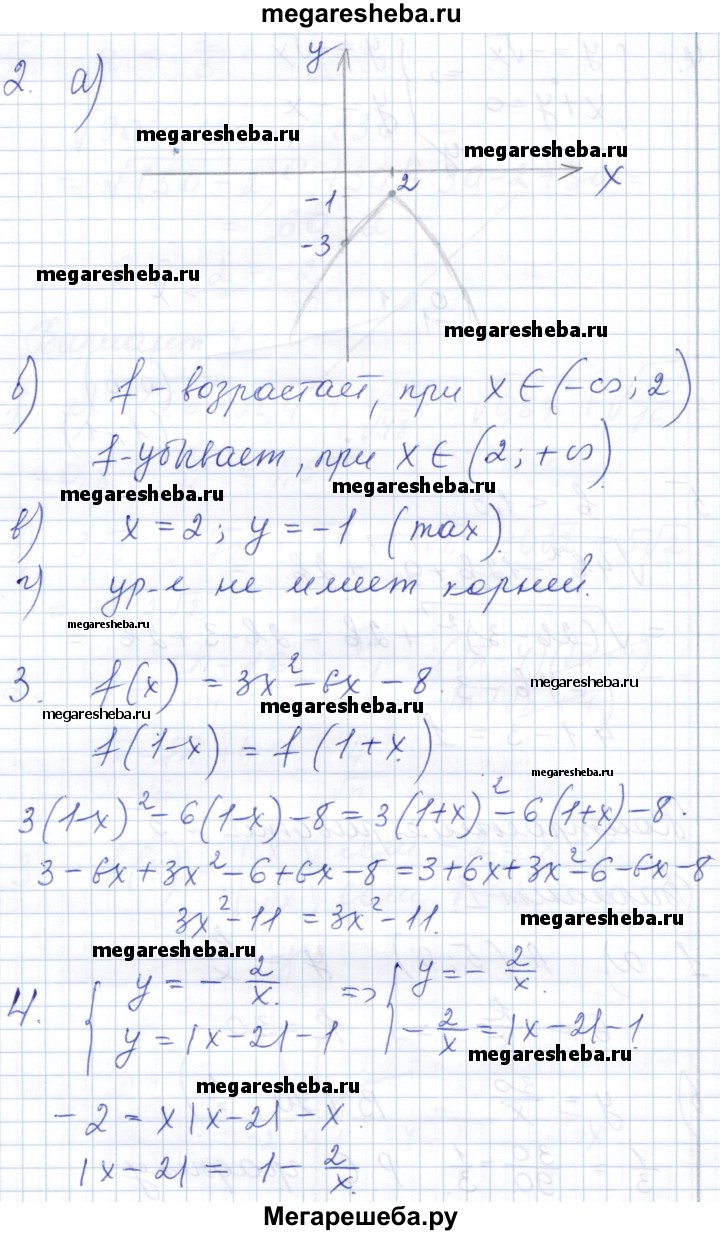 megaresheba.ru
2. а) y
megaresheba.ru
megaresheba.ru
2 x
-1
-3
megaresheba.ru
megaresheba.ru
б) f - возрастает, при x ∈ (-∞; 2)
f - убывает, при x ∈ (2; +∞)
megaresheba.ru megaresheba.ru
в) x = 2; y = -1 (max)
г) ур-е не имеет корней.
megaresheba.ru
3. f(x) = 3x² - 6x - 8.
megaresheba.ru
megaresheba.ru megaresheba.ru
f(1-x) = f(1+x)
megaresheba.ru
3(1-x)² - 6(1-x) - 8 = 3(1+x)² - 6(1+x) - 8.
3 - 6x + 3x² - 6 + 6x - 8 = 3 + 6x + 3x² - 6 - 6x - 8
3x² - 11 = 3x² - 11.
megaresheba.ru
megaresheba.ru
4. { y = - 2/x. => { y = - 2/x.
{ y = |x - 2| - 1 { - 2/x = |x - 2| - 1.
megaresheba.ru
megaresheba.ru
- 2 = x|x - 2| - x.
|x - 2| = 1 - 2/x.
Мегарешеба.ру